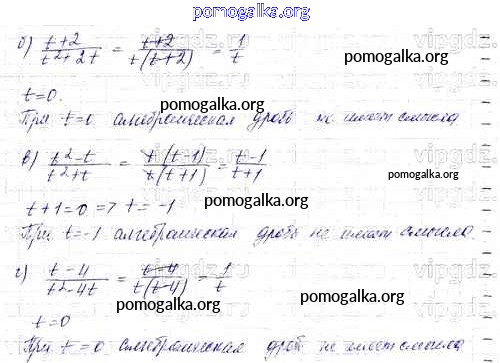 pomogalka.org
б) t+2/t²+2t = t+2/t(t+2) = 1/t
t=0.
При t=0 алгебраическая дробь не имеет смысла
в) t²-t/t²+t = t(t-1)/t(t+1) = t-1/t+1
t+1=0 => t=-1
При t=-1 алгебраическая дробь не имеет смысла
г) t-4/t²-4t = t-4/t(t-4) = 1/t
t=0
При t=0 алгебраическая дробь не имеет смысла
vipgdz.ru
pomogalka.org
pomogalka.org
pomogalka.org
pomogalka.org
pomogalka.org
pomogalka.org
pomogalka.org